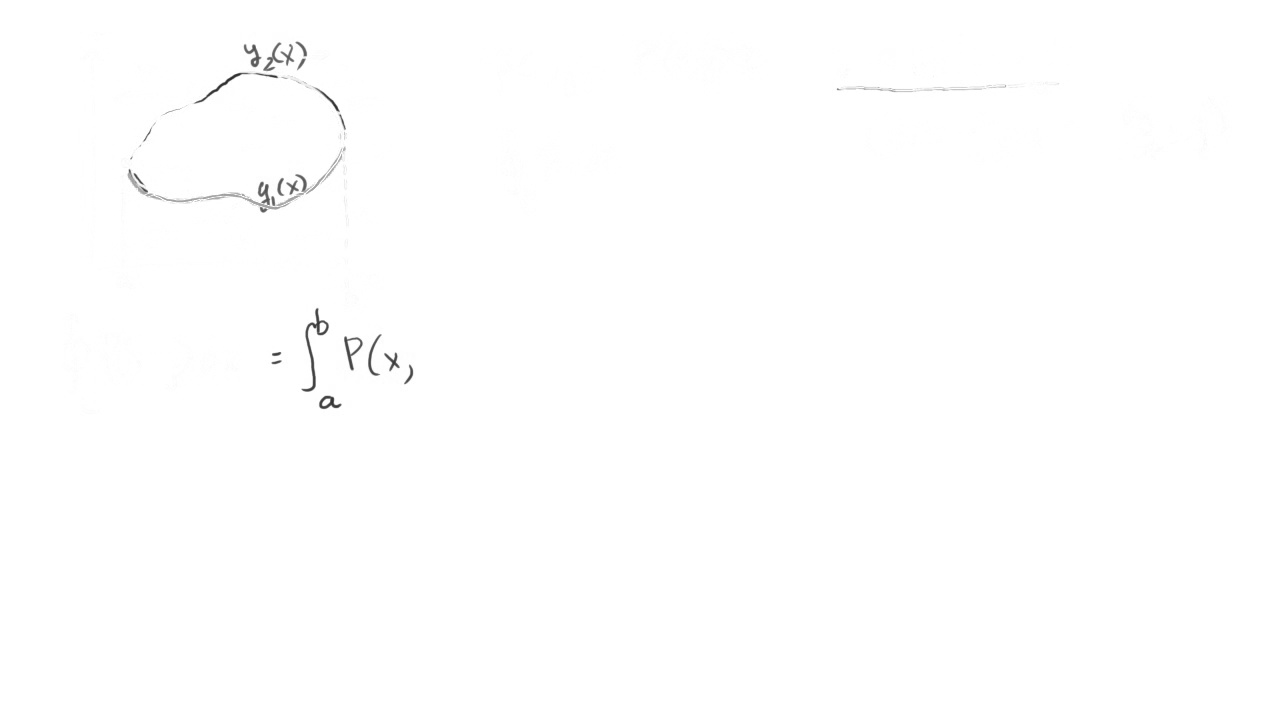 y₂(x)
y₁(x)
= ∫ₐᵇ P(x,